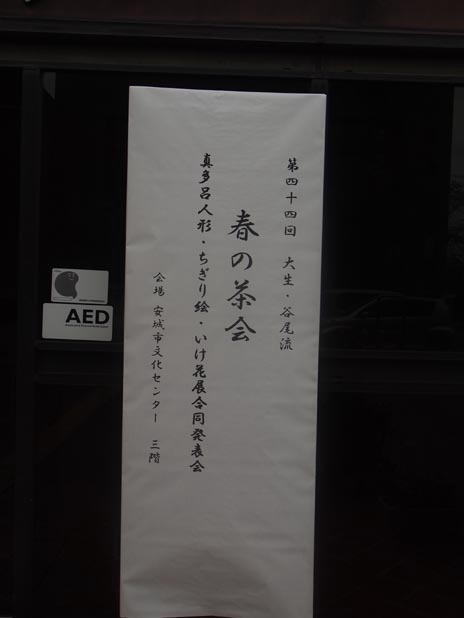 第四十四回 大生・谷尾流
春の茶会
真多呂人形・ちぎり絵・いけ花展合同発表会
会場 安城市文化センター 三階
AED